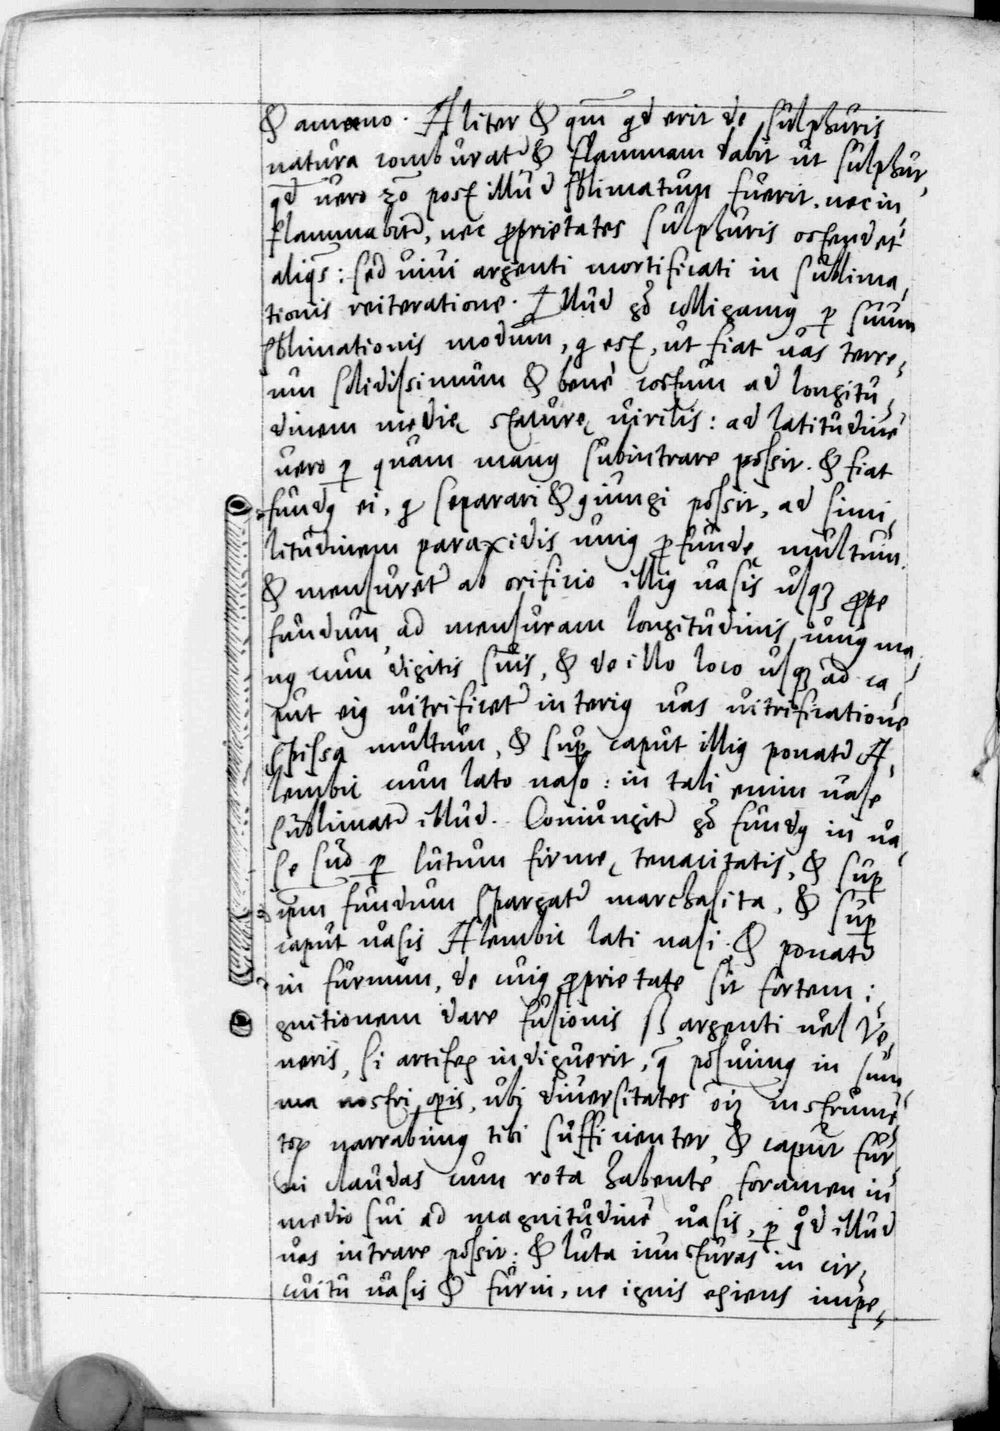 & amœno. Aliter & qm̄ qd erit de sulphuris
natura comburat᷑ & flammam dabit ut sulphur,
qd̄ vero ꝫo post illud sblimatum fuerit, nec in,
flammabit᷑, nec ꝓprietates sulphuris ostendet
aliqs̄: sed vivi argenti mortificati in sublima,
tionis reiteratione. Illud gͦ colligamꝰ ꝑ suum
sblimationis modum, q est, ut fiat vas terre,
um solidissimum & benè coctum ad longitu,
dinem medię staturę virilis: ad latitudinē
vero ꝑ quam manꝰ subintrare possit. & fiat
fundꝰ ei, q separari & ꝯiungi possit, ad simi,
litudinem paraxidis uniꝰ ꝓfundę multum.
& mensuret᷑ ab orificio illiꝰ vasis usqꝫ ꝓpe
fundum, ad mensuram longitudinis uniꝰ ma,
nꝰ cum digitis suis, & de illo loco usqꝫ ad ca,
put eiꝰ vitrificet᷑ interiꝰ vas vitrificatione
spissa multum, & suꝑ caput illiꝰ ponat᷑ A,
lembic cum lato naso: in tali enim vase
sublimat᷑ illud. Coniungit᷑ gͦ fundꝰ in va,
se suo ꝑ lutum firmę tenacitatis, & suꝑ
ipm̄ fundum spargat᷑ marchasita, & suꝑ
caput vasis Alembic lati nasi. & ponat᷑
in furnum, de cuiꝰ ꝓprietate sit fortem i,
gnitionem dare fusionis ß argenti vel Ve,
neris, si artifex indiguerit, q̄ posuimꝰ in sum,
ma nostri oꝑis, ubi diversitates oīꝫ instrumē,
toꝝ narrabimꝰ tibi sufficienter & caput fur,
ni claudas cum rota habente foramen in
medio sui ad magnitudinē vasis, ꝑ qd illud
vas intrare possit: & luta iuncturas in cir,
cuitu vasis & furni, ne ignis exiens impe,